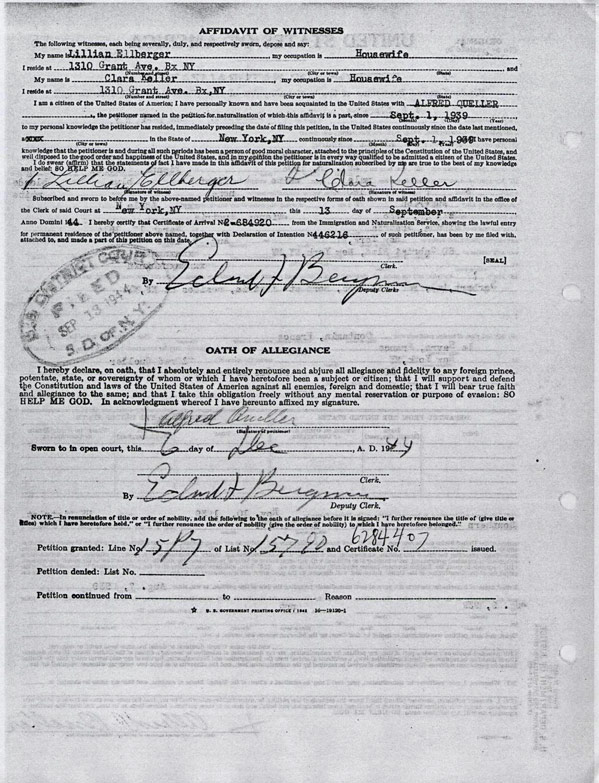 AFFIDAVIT OF WITNESSES
The following witnesses, each being severally, duly, and respectively sworn, depose and say:
My name is Lillian Ellberger , my occupation is Housewife
I reside at 1310 Grant Ave. Bx NY and
(Number and street) (City or town) (State)
My name is Clara Keller , my occupation is Housewife
I reside at 1310 Grant Ave. Bx,NY
(Number and street) (City or town) (State)
I am a citizen of the United States of America; I have personally known and have been acquainted in the United States with ALFRED QUELLER
, the petitioner named in the petition for naturalization of which this affidavit is a part, since Sept. 1, 1939
to my personal knowledge the petitioner has resided, immediately preceding the date of filing this petition, in the United States continuously since the date last mentioned,
in the State of New York,NY continuously since Sept. 1, 1939 I have personal
(City or town) (Month) (Day) (Year)
knowledge that the petitioner is and during all such periods has been a person of good moral character, attached to the principles of the Constitution of the United States, and
well disposed to the good order and happiness of the United States, and in my opinion the petitioner is in every way qualified to be admitted a citizen of the United States.
I do swear (affirm) that the statements of fact I have made in this affidavit of this petition for naturalization subscribed by me are true to the best of my knowledge
and belief: SO HELP ME GOD.
Lillian Ellberger Clara Keller
(Signature of witness) (Signature of witness)
Subscribed and sworn to before me by the above-named petitioner and witnesses in the respective forms of oath shown in said petition and affidavit in the office of
the Clerk of said Court at New York,NY this 13 day of September
Anno Domini 1944. I hereby certify that Certificate of Arrival No 2-684920 from the Immigration and Naturalization Service, showing the lawful entry
for permanent residence of the petitioner above named, together with Declaration of Intention No 446216 of such petitioner, has been by me filed with,
attached to, and made a part of this petition on this date.
Clerk. [SEAL]
By Edward F Bergman
Deputy Clerk.
U.S. DISTRICT COURT
FILED
SEP 13 1944
S. D. OF N. Y.
OATH OF ALLEGIANCE
I hereby declare, on oath, that I absolutely and entirely renounce and abjure all allegiance and fidelity to any foreign prince,
potentate, state, or sovereignty of whom or which I have heretofore been a subject or citizen; that I will support and defend
the Constitution and laws of the United States of America against all enemies, foreign and domestic; that I will bear true faith
and allegiance to the same; and that I take this obligation freely without any mental reservation or purpose of evasion: SO
HELP ME GOD. In acknowledgment whereof I have hereunto affixed my signature.
Alfred Queller
(Signature of petitioner)
Sworn to in open court, this 6 day of Dec , A. D. 1944
Clerk.
By Edward F Bergman
Deputy Clerk.
NOTE.—In renunciation of title or order of nobility, add the following to the oath of allegiance before it is signed: "I further renounce the title of (give title or
titles) which I have heretofore held," or "I further renounce the order of nobility (give the order of nobility) to which I have heretofore belonged."
Petition granted: Line No. of List No. and Certificate No. 6284407 issued.
Petition denied: List No.
Petition continued from to Reason
☆ U. S. GOVERNMENT PRINTING OFFICE : 1942 16—19120-1